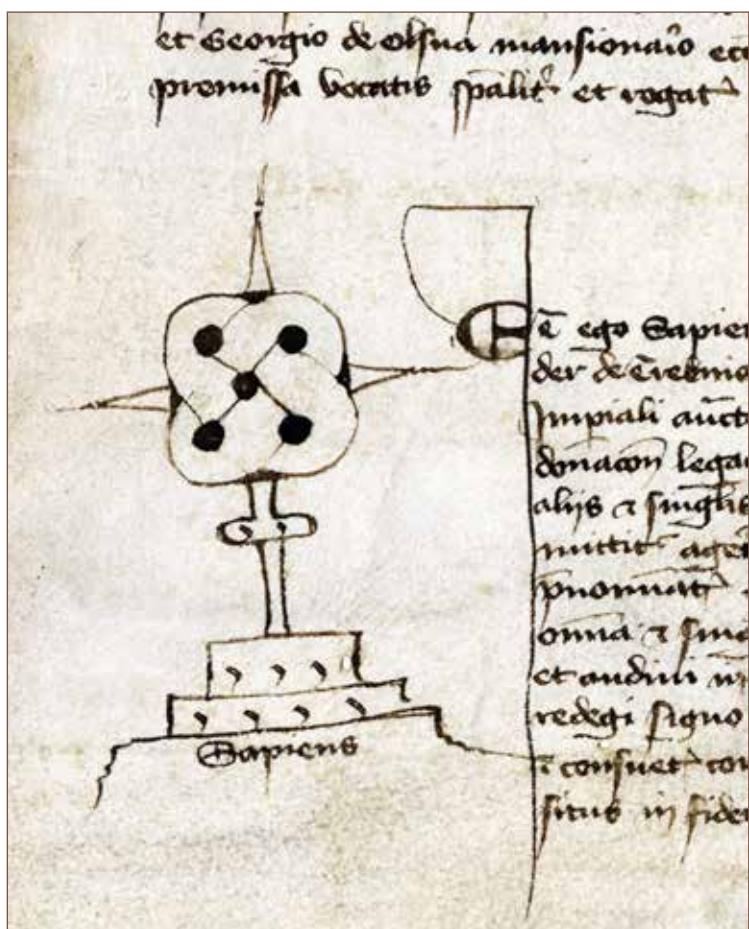 et Georgio de Olsna mansionario ecc
premissa vocatis spalit et rogat
Et ego Sapien
der de Trebnis
Impiali auct
donacon lega
aliis et singlis
mittit agen
pnominat
omnia et sing
et audivi
redegi signo
et consuet con
situs in fidem
Sapiens